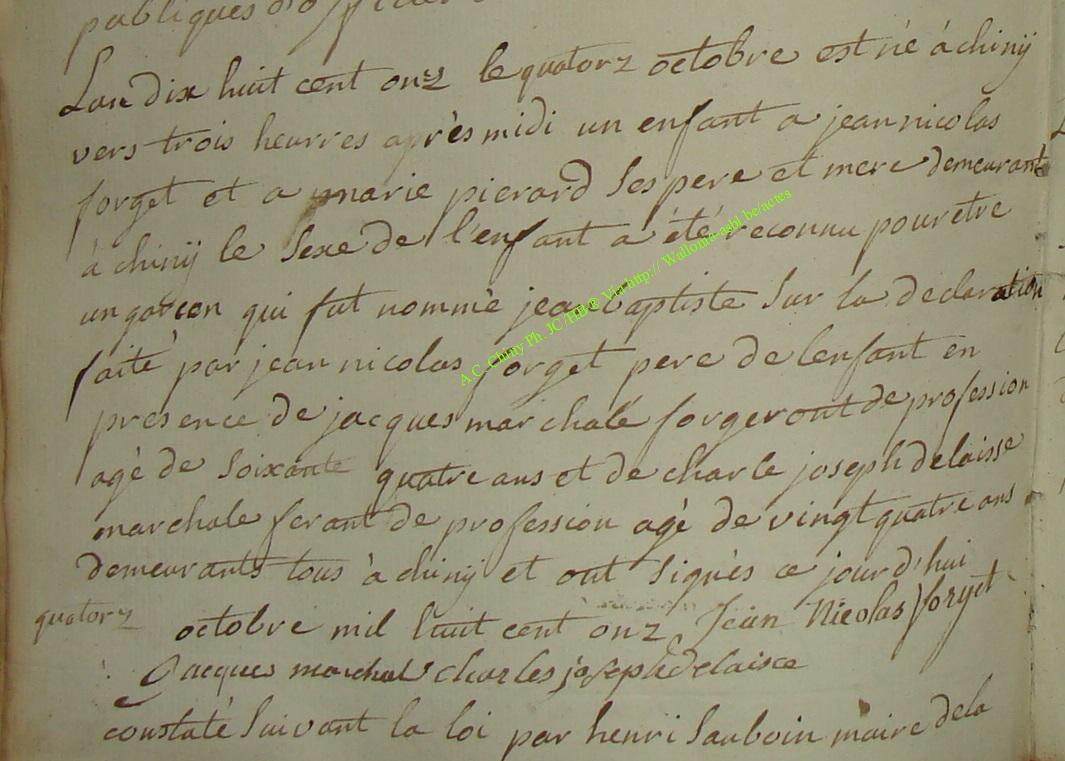 publiques
Lan dix huit cent onz le quatorz octobre est né à chinÿ
vers trois heurres après midi un enfant a jean nicolas
forget et a marie pierard ses pere et mere demeurant
à chinÿ le sexe de l'enfant a été reconnu pour etre
un garcon qui fut nommé jean baptiste sur la declaration
faite par jean nicolas forget pere de lenfant en
presence de jacques marchale forgeront de profession
agé de soixante quatre ans et de charle joseph delaisse
marchale ferant de profession agé de vingt quatre ans
demeurants tous à chinÿ et ont signés ce jourd'hui
quatorz octobre mil huit cent onz Jean Nicolas forget
Jacques marchal charles joseph delaisce
constaté suivant la loi par henri sauboin maire de la
A.C. Chiny Ph. JC /HB® Via http:// Wallonia-asbl.be/actes